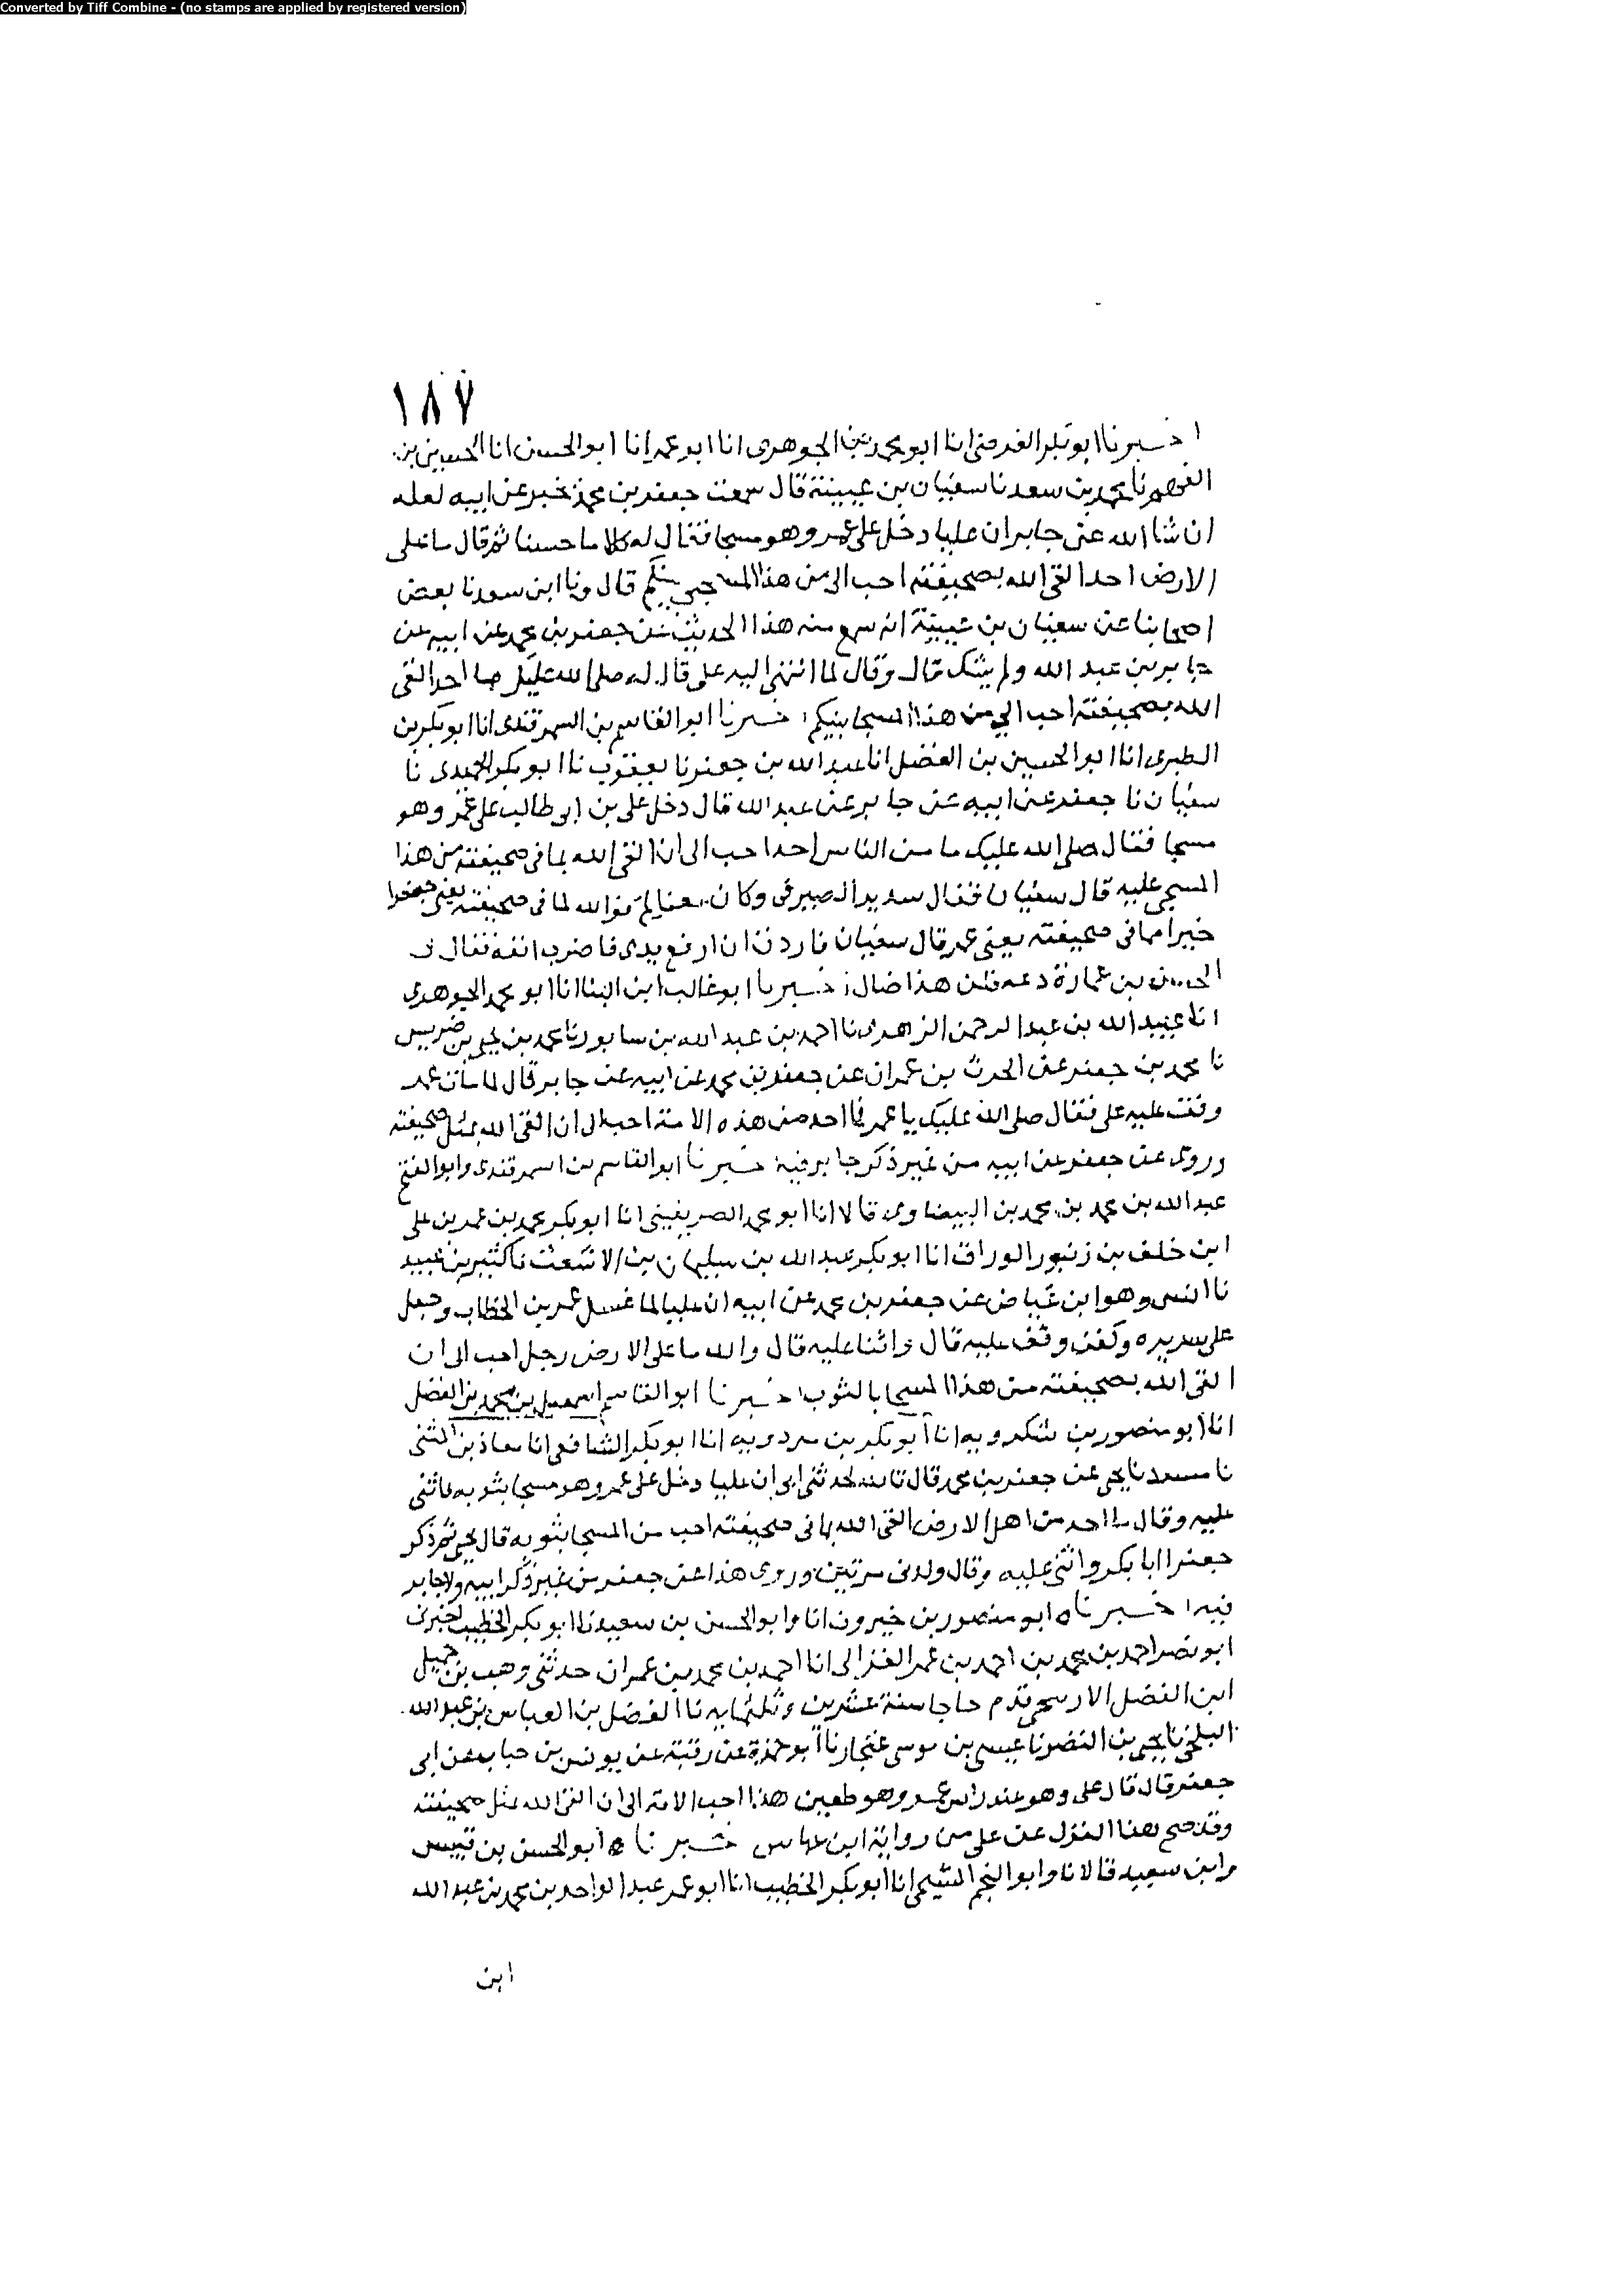 Converted by Tiff Combine - (no stamps are applied by registered version)
١٨٧
اخبرنا ابو بكر الفرضى انا ابو محمد الجوهرى انا ابو عمر انا ابو الحسن انا الحسين بن
الفهم نا محمد بن سعد نا سفيان بن عيينة قال سمعت جعفر بن محمد يخبر عن ابيه لعله
ان شا الله عن جابر ان عليا دخل على عمر وهو مسجا فقال له كلاما حسنا ثم قال ما على
الارض احد القى الله بصحيفته احب الى من هذا المسجى بينكم قال ونا ابن سعد نا بعض
اصحابنا عن سفيان بن عيينة انه سمع منه هذا الحديث عن جعفر بن محمد عن ابيه عن
جابر بن عبد الله ولم يشك قال وقال لما انتهى اليه على قال له صلى الله عليك ما احد القى
الله بصحيفته احب الي من هذا المسجا بينكم اخبرنا ابو القاسم بن السمرقندى انا ابو بكر بن
الطبرى انا ابو الحسين بن الفضل انا عبد الله بن جعفر نا يعقوب نا ابو بكر الحميدى نا
سفيان نا جعفر عن ابيه عن جابر عن عبد الله قال دخل على بن ابى طالب على عمر وهو
مسجا فقال صلى الله عليك ما من الناس احد احب الى ان القى الله بما فى صحيفته من هذا
المسجى عليه قال سفيان فقال سديد الصيرفى وكان معنا لم فوالله لما فى صحيفته يعنى جعفرا
خير مما فى صحيفته يعنى عمر قال سفيان فاردت ان ارفع يدى فاضرب انفه فقال لى
الحسن بن عمارة دعه فان هذا ضال اخبرنا ابو غالب ابن البنا انا ابو محمد الجوهرى
انا عبيد الله بن عبد الرحمن الزهرى نا احمد بن عبد الله بن سابور نا محمد بن يحيى بن ضريس
نا محمد بن جعفر عن الحرث بن عمران عن جعفر بن محمد عن ابيه عن جابر قال لما مات عمر
وقف عليه على فقال صلى الله عليك يا عمر فما احد من هذه الامة احب الى ان القى الله بمثل صحيفته
وروى عن جعفر عن ابيه من غير ذكر جابر فيه اخبرنا ابو القاسم بن السمرقندى وابو الفتح
عبد الله بن محمد بن محمد بن البيضاوى قالا انا ابو محمد الصريفينى انا ابو بكر محمد بن عمر بن على
ابن خلف بن زنبور الوراق انا ابو بكر عبد الله بن سليمان بن الاشعث نا كثير بن عبيد
نا انس وهو ابن عياض عن جعفر بن محمد عن ابيه ان عليا لما غسل عمر بن الخطاب وجعل
على سريره وكفن وقف عليه قال واثنا عليه قال والله ما على الارض رجل احب الى ان
القى الله بصحيفته من هذا المسجا بالثوب اخبرنا ابو القاسم اسمعيل بن محمد بن الفضل
انا ابو منصور بن شكرويه انا ابو بكر بن مردويه انا ابو بكر الشافعى انا معاذ بن المثنى
نا مسدد نا يحيى عن جعفر بن محمد قال تا لله لحدثنى ابى ان عليا دخل على عمر وهو مسجا بثوبه فاثنى
عليه وقال ما احد من اهل الارض القى الله بما فى صحيفته احب من المسجا بثوبه قال يحيى ثم ذكر
جعفر ابا بكر واثنى عليه وقال ولدنى مرتين وروى هذا عن جعفر من غير ذكر ابيه ولا جابر
فيه اخبرناه ابو منصور بن خيرون انا وابو الحسن بن سعيد نا ابو بكر الخطيب اخبرنى
ابو نصر احمد بن محمد بن احمد بن عمر الغزالى انا احمد بن محمد بن عمران حدثنى وهب بن جميل
ابن الفضل قدم حاجا سنة عشرين وثلثمايه نا الفضل بن العباس بن عبد الله
البلخى نا يحيى بن النضر نا عيسى بن موسى غنجار نا ابو حمزة عن رقبة عن يونس بن خباب عن ابى
جعفر قال قال على وهو عند راس عمر وهو طعين هذا احب الامة الى ان القى الله بمثل صحيفته
وقد صح هذا القول عن على من رواية ابن عباس اخبرناه ابو الحسن بن قبيس
وابن سعيد قالا نا وابو النجم الشيحى انا ابو بكر الخطيب انا ابو عمر عبد الواحد بن محمد بن عبد الله
ابن